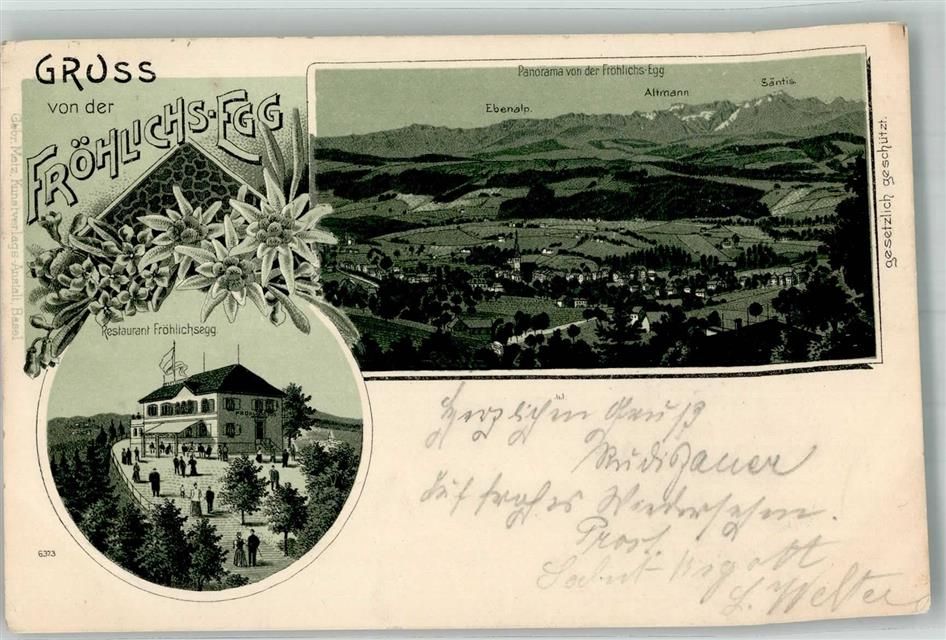 GRUSS
von der
FRÖHLICHS-EGG
Panorama von der Fröhlichs-Egg
Ebenalp.
Altmann
Säntis.
gesetzlich geschützt.
Gebr. Metz, Kunstverlags-Anstalt, Basel
Restaurant Fröhlichsegg.
6373
Herzlichen Gruß
Auf frohes Wiedersehen.
Prost.
Welter